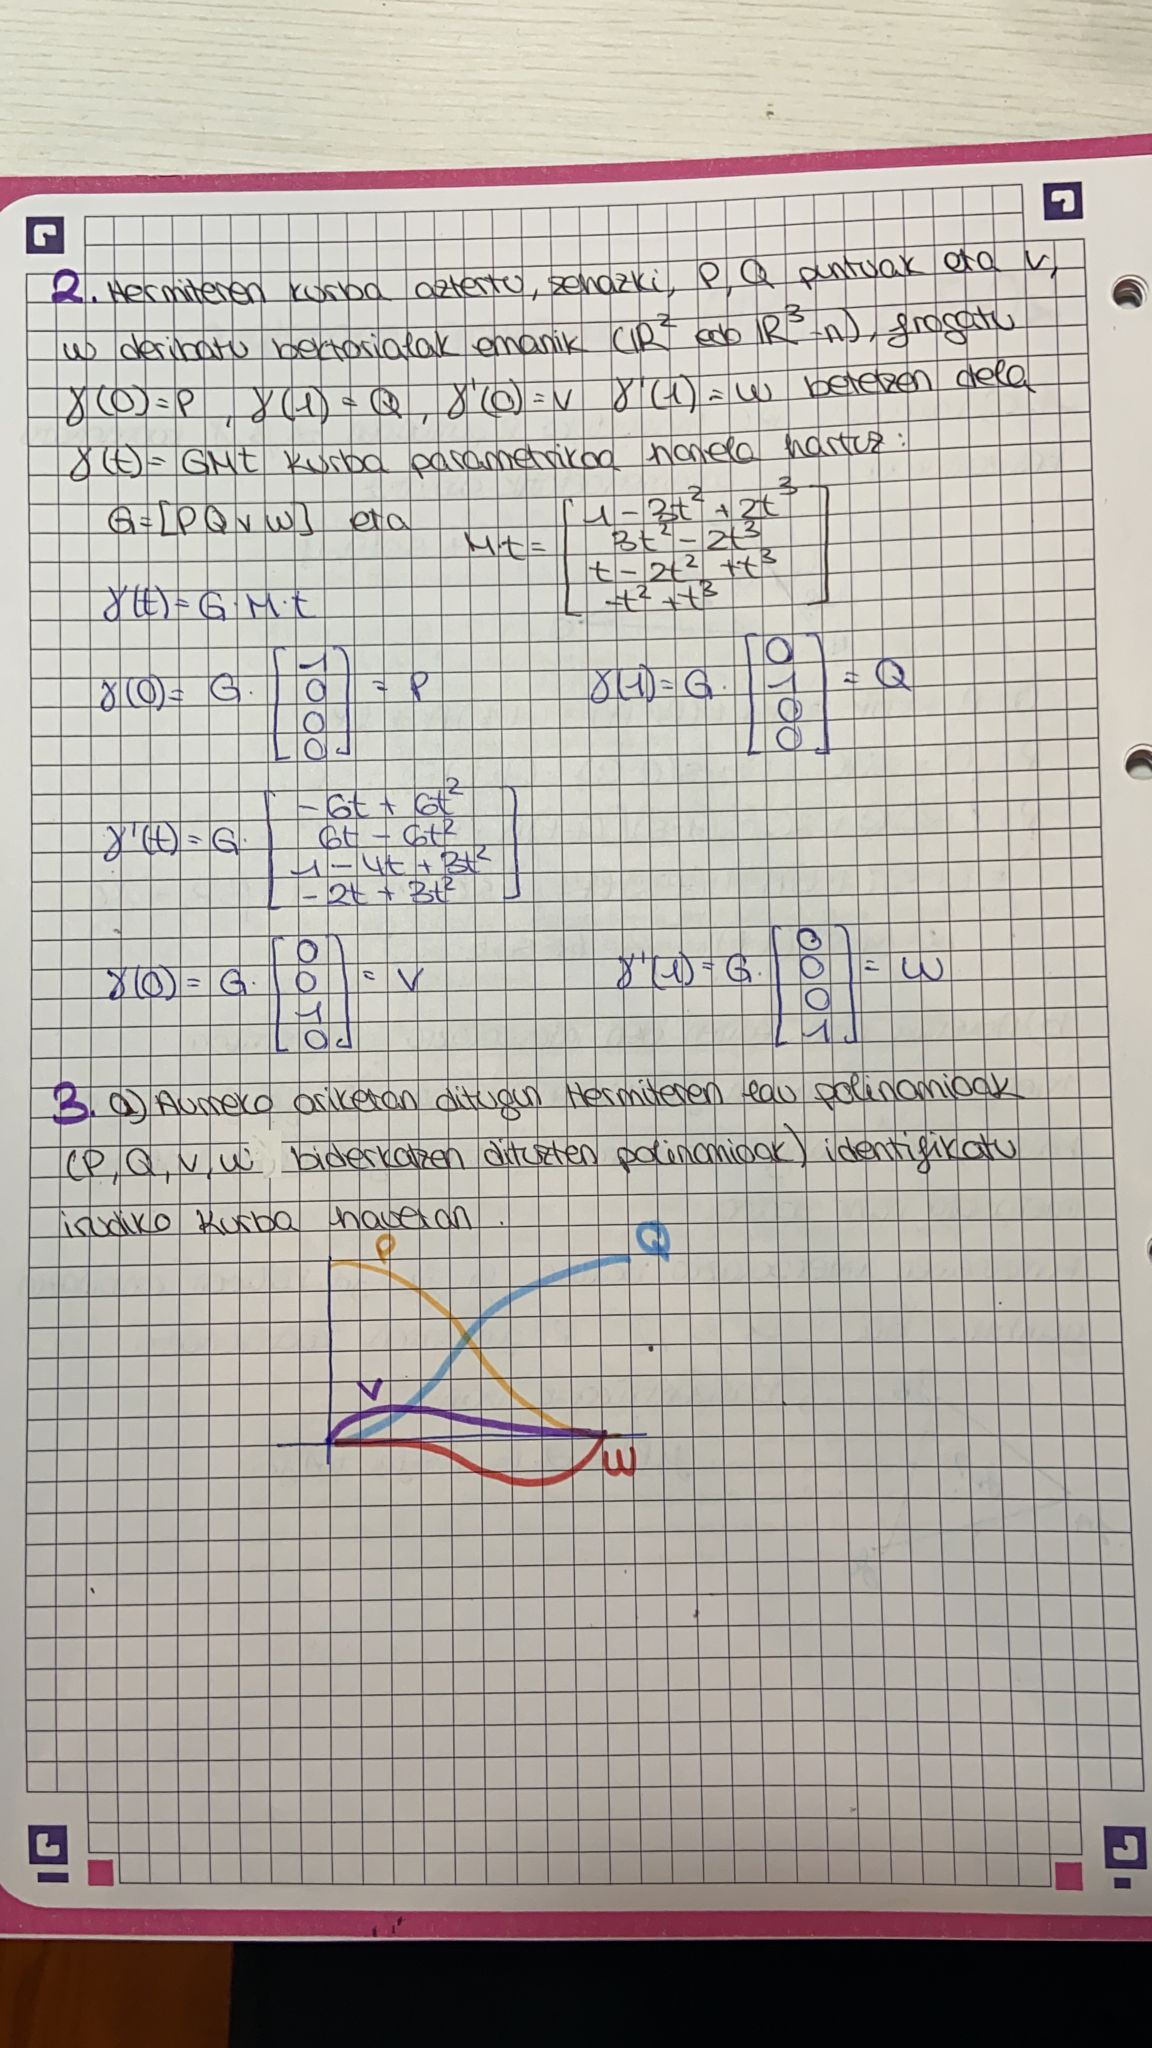 2. Hermiteren kurba aztertu, zehazki, P, Q puntuak eta v,
w deribatu bektorialak emanik (ℝ² edo ℝ³-n), frogatu
γ(0)=P, γ(1)=Q, γ'(0)=v γ'(1)=w betetzen dela
γ(t)=GMt kurba parametrikoa honela hartuz:
G=[P Q v w] eta Mt= [1-3t²+2t³
3t²-2t³
t-2t²+t³
-t²+t³]
γ(t)=G·M·t
γ(0)= G·[1 0 0 0] = P γ(1)=G·[0 1 0 0] = Q
γ'(t)=G·[-6t+6t²
6t-6t²
1-4t+3t²
-2t+3t²]
γ(0)=G·[0 0 1 0] = v γ'(1)=G·[0 0 0 1] = w
3. a) Aurreko ariketan ditugun Hermiteren lau polinomioak
(P, Q, v, w biderkatzen dituzten polinomioak) identifikatu
irudiko kurba hauetan.
P
Q
v
w